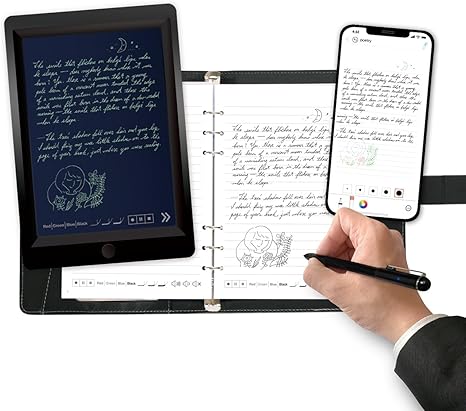 The smile that flickers on baby's lips when
he sleeps — does anybody know where it was
born? Yes, there is a rumor that a young
pale beam of a crescent moon touched the edge
of a vanishing autumn cloud, and there the
smile was first born in the dream of a
morning — the smile that flickers on baby's lips
when he sleeps.
shadow fell over your hair and your lap,
I should fling my wee little shadow on the
page of your book, just where you were reading.
Red Green Blue Black
The smile that flickers on baby's lips when
he sleeps — does anybody know where it was
born? Yes, there is a rumor that a young
pale beam of a crescent moon touched the edge
of a vanishing autumn cloud, and there the
smile was first born in the dream of a
morning — the smile that flickers on baby's lips
when he sleeps.
shadow fell over your hair and your lap,
I should fling my wee little shadow on the
page of your book, just where you were reading.
Red Green Blue Black
Red Green Blue Black
4:42
poetry
The smile that flickers on baby's lips when
he sleeps — does anybody know where it was
born? Yes, there is a rumor that a young
pale beam of a crescent moon touched the edge
of a vanishing autumn cloud, and there the
smile was first born in the dream of a
morning — the smile that flickers on baby's lips
when he sleeps.